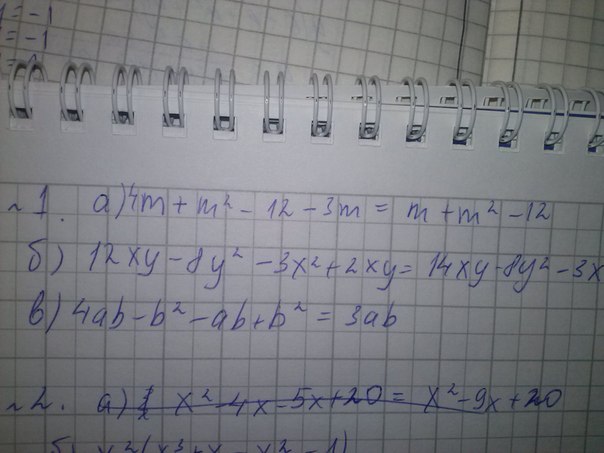 1 = -1
= -1
~ 1. а) 4m + m² - 12 - 3m = m + m² - 12
б) 12xy - 8y² - 3x² + 2xy = 14xy - 8y² - 3x
в) 4ab - b² - ab + b² = 3ab
~ 2. а) x² - 4x - 5x + 20 = x² - 9x + 20
б) x²(x³ + x - x² - 1)